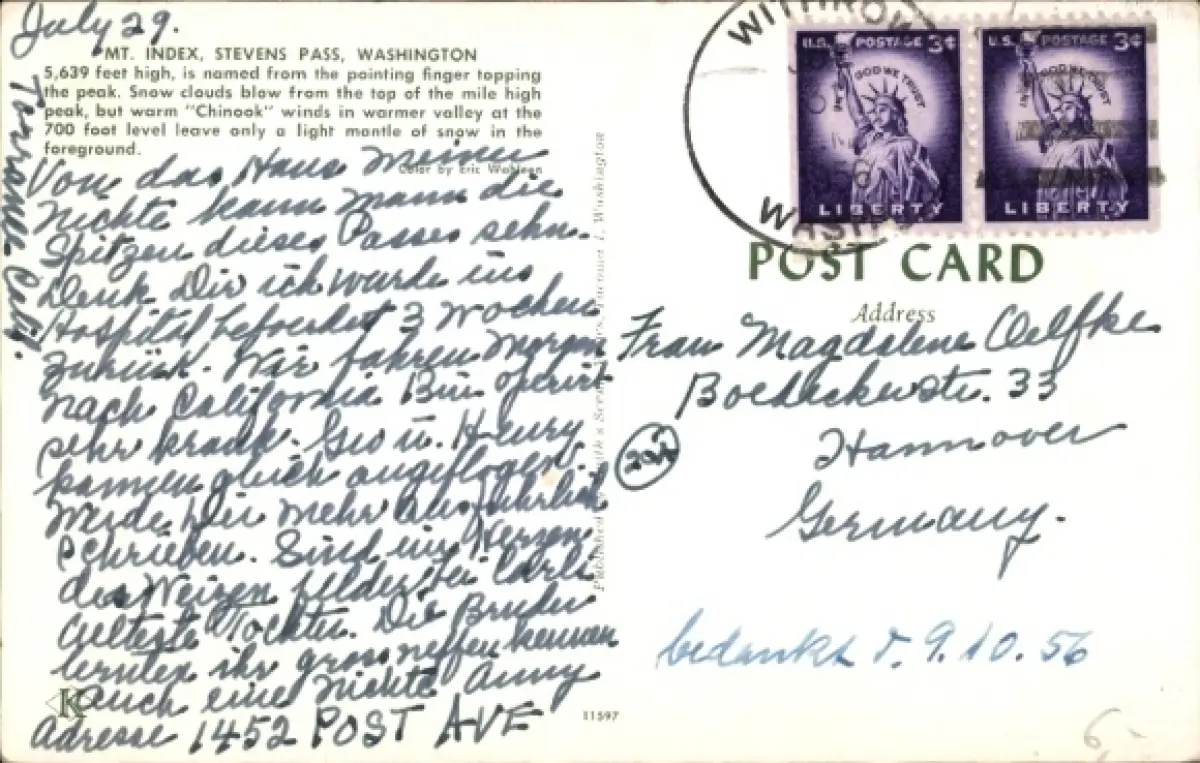 July 29.
MT. INDEX, STEVENS PASS, WASHINGTON
5,639 feet high, is named from the pointing finger topping
the peak. Snow clouds blow from the top of the mile high
peak, but warm "Chinook" winds in warmer valley at the
700 foot level leave only a light mantle of snow in the
foreground.
Color by Eric
Von das Haus meiner
Nichte kann mann die
Spitzen dieses Passes sehn.
Denk Dir ich wurde ins
Hospital befoerdert 3 wochen
zurück. Wir fahren morgen
nach California Bin operirt
sehr krank. Geo u. Henry
kammen gleich angeflogen.
Werde Dir mehr ausfuhrlich
schrieben. Sind im Herzen
des Weizen felder bei Carls
Aelteste Tochter. Die Bruder
lernten ihr grossneffen kennen
auch eine Nichte Anny
Adresse 1452 POST AVE
Torrance Calif.
K
11597
WITHROW
WASH
U.S. POSTAGE 3¢
IN GOD WE TRUST
LIBERTY
U.S. POSTAGE 3¢
IN GOD WE TRUST
LIBERTY
POST CARD
Address
Frau Magdalene Oelfke
Boedeckerstr. 33
Hannover
Germany.
bedankt d. 9.10.56
6,-